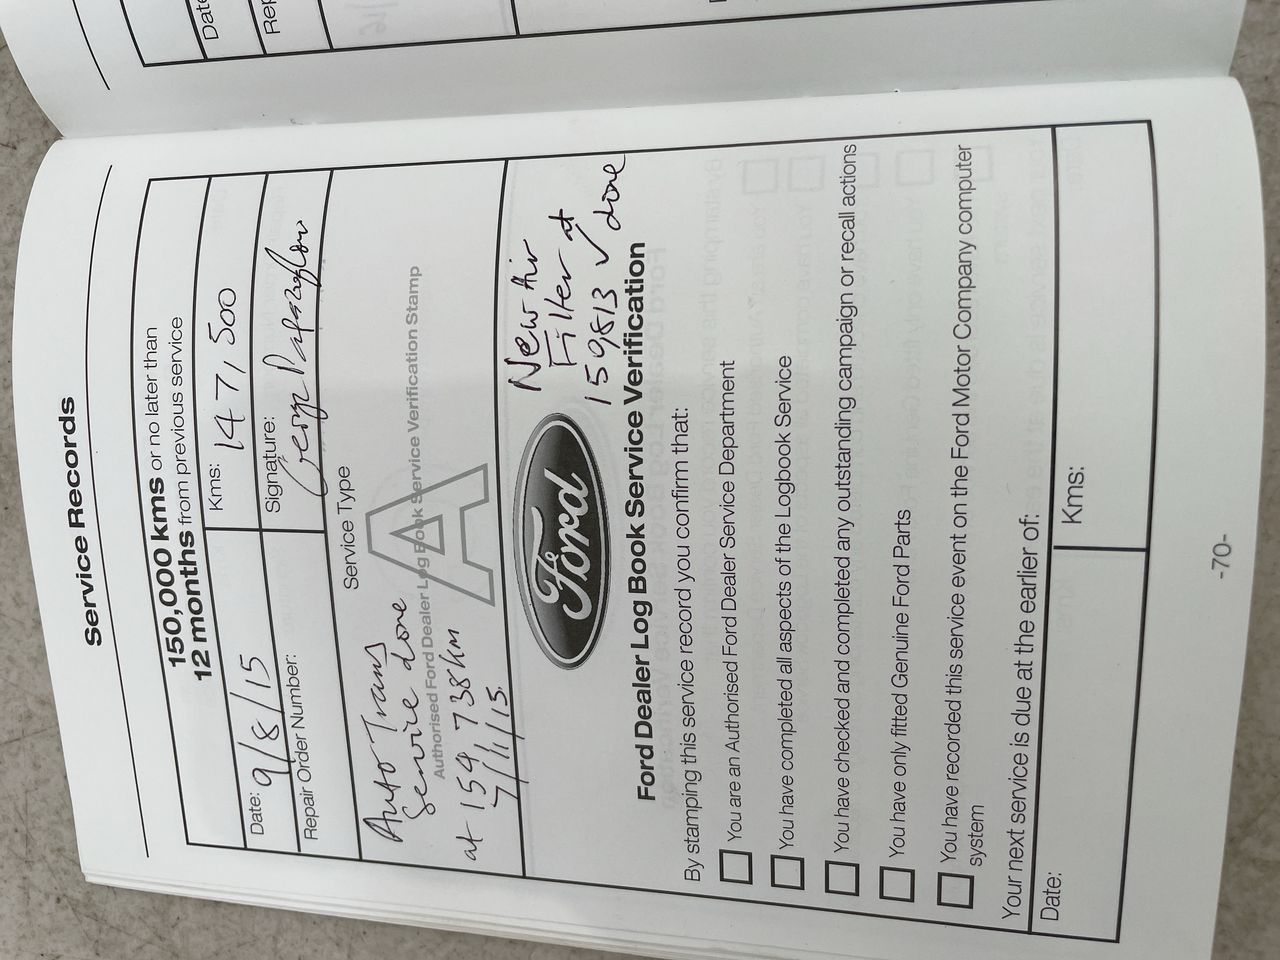 Service Records
150,000 kms or no later than
12 months from previous service
Date: 9/8/15
Kms: 147,500
Repair Order Number:
Signature:
Service Type
Auto Trans
Service done
Authorised Ford Dealer Log Book Service Verification Stamp
A
at 154 738km
7/1/15
Ford
New Air
Filter at
159813 ✓ done
Ford Dealer Log Book Service Verification
By stamping this service record you confirm that:
You are an Authorised Ford Dealer Service Department
You have completed all aspects of the Logbook Service
You have checked and completed any outstanding campaign or recall actions
You have only fitted Genuine Ford Parts
You have recorded this service event on the Ford Motor Company computer
system
Your next service is due at the earlier of:
Date:
Kms:
-70-